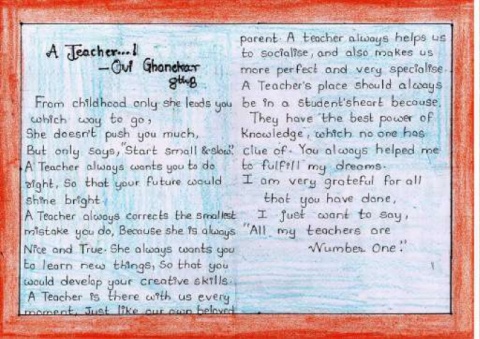 A Teacher...!
- Ovi Ghanekar
From childhood only she leads you
which way to go,
She doesn't push you much,
But only says, "Start small & slow."
A Teacher always wants you to do
right, So that your future would
shine bright.
A Teacher always corrects the smallest
mistake you do, Because she is always
Nice and True. She always wants you
to learn new things, So that you
would develop your creative skills.
A Teacher is there with us every
moment, Just like our own beloved
parent. A teacher always helps us
to socialise, and also makes us
more perfect and very specialise.
A Teacher's place should always
be in a student'sheart because,
They have the best power of
Knowledge, which no one has
clue of. You always helped me
to fulfill my dreams.
I am very grateful for all
that you have done,
I just want to say,
"All my teachers are
Number One."